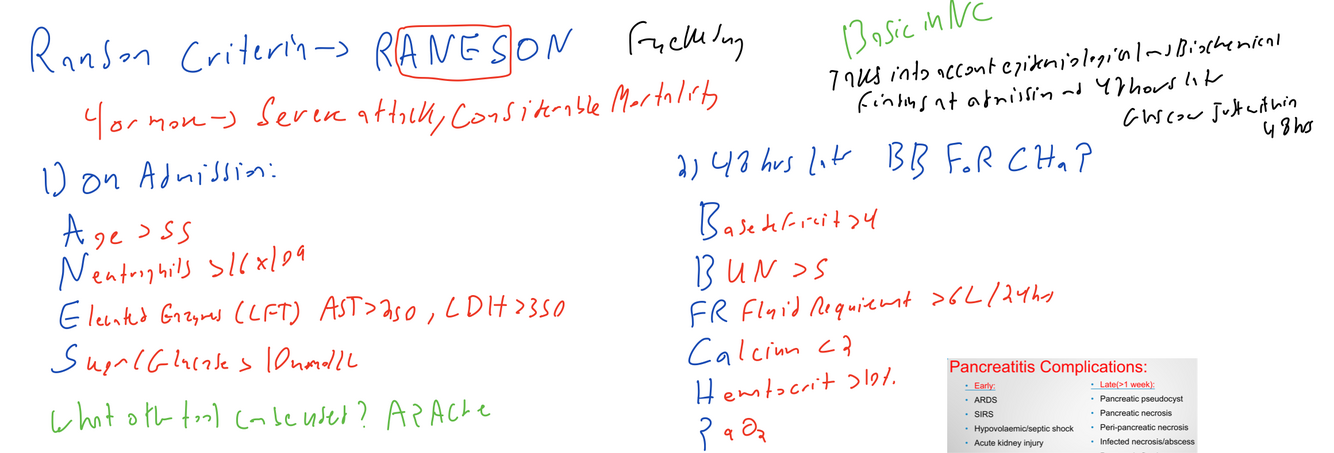 Ranson Criteria → RANESON
4 or more → Severe attack, Considerable Mortality
Basic in NC
Takes into account epidemiological → Biochemical
findings at admission → 48 hours later
Glascow Just within
48hrs
1) On Admission:
Age > 55
Neutrophils > 16 x 109
Elevated Enzymes (LFT) AST > 250, LDH > 350
Sugar/Glucose > 10 mmol/L
What other tool can be used? APAChe
2) 48 hrs later BB FoR CHaP
Base deficit > 4
BUN > 5
FR Fluid Requirement > 6L/24hrs
Calcium < 2
Hematocrit > 10%
PaO2
Pancreatitis Complications:
• Early:
• ARDS
• SIRS
• Hypovolaemic/septic shock
• Acute kidney injury
• Late(>1 week):
• Pancreatic pseudocyst
• Pancreatic necrosis
• Peri-pancreatic necrosis
• Infected necrosis/abscess